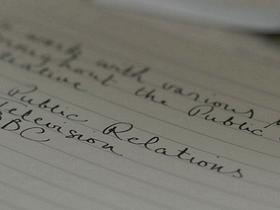 work with various
throughout the Public
Public Relations
Television
BBC